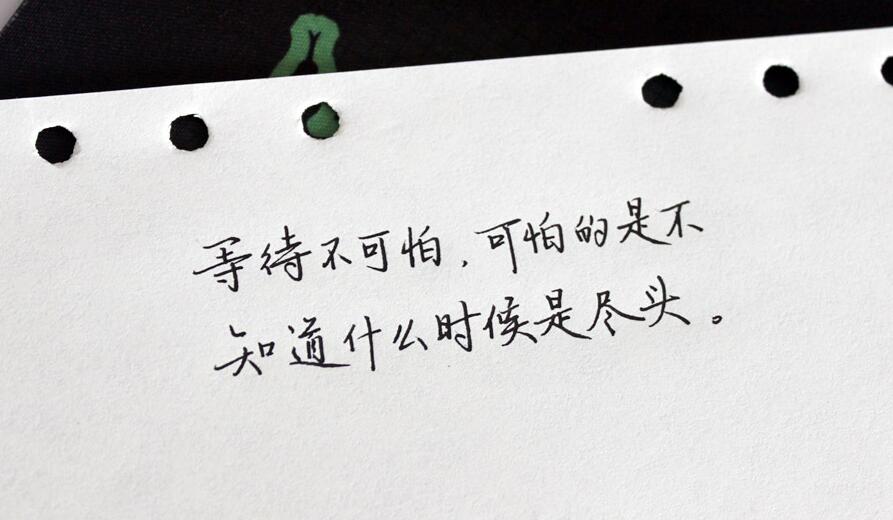 等待不可怕，可怕的是不
知道什么时候是尽头。